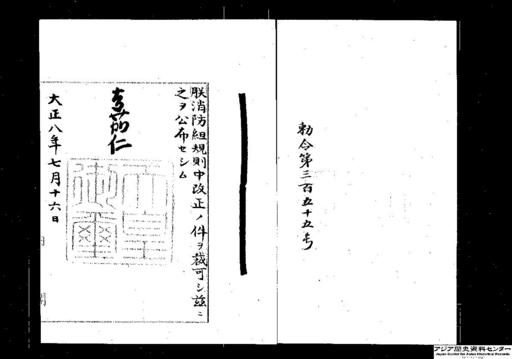 勅令第三百五十五号
朕消防組規則中改正ノ件ヲ裁可シ茲ニ
之ヲ公布セシム
嘉仁
天皇御璽
大正八年七月十六日
アジア歴史資料センター
Japan Center for Asian Historical Records